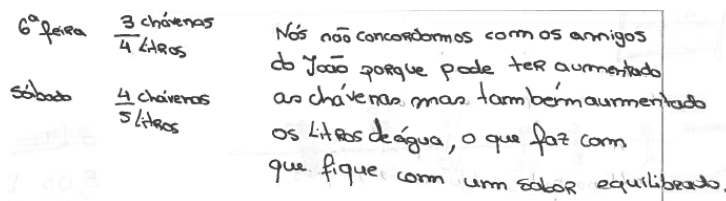 6ª feira 3 chávenas
4 Litros
Sábado 4 chávenas
5 Litros
Nós não concordarmos com os amigos
do João porque pode ter aumentado
as chávenas mas também aumentado
os Litros de água, o que faz com
que fique com um sabor equilibrado.